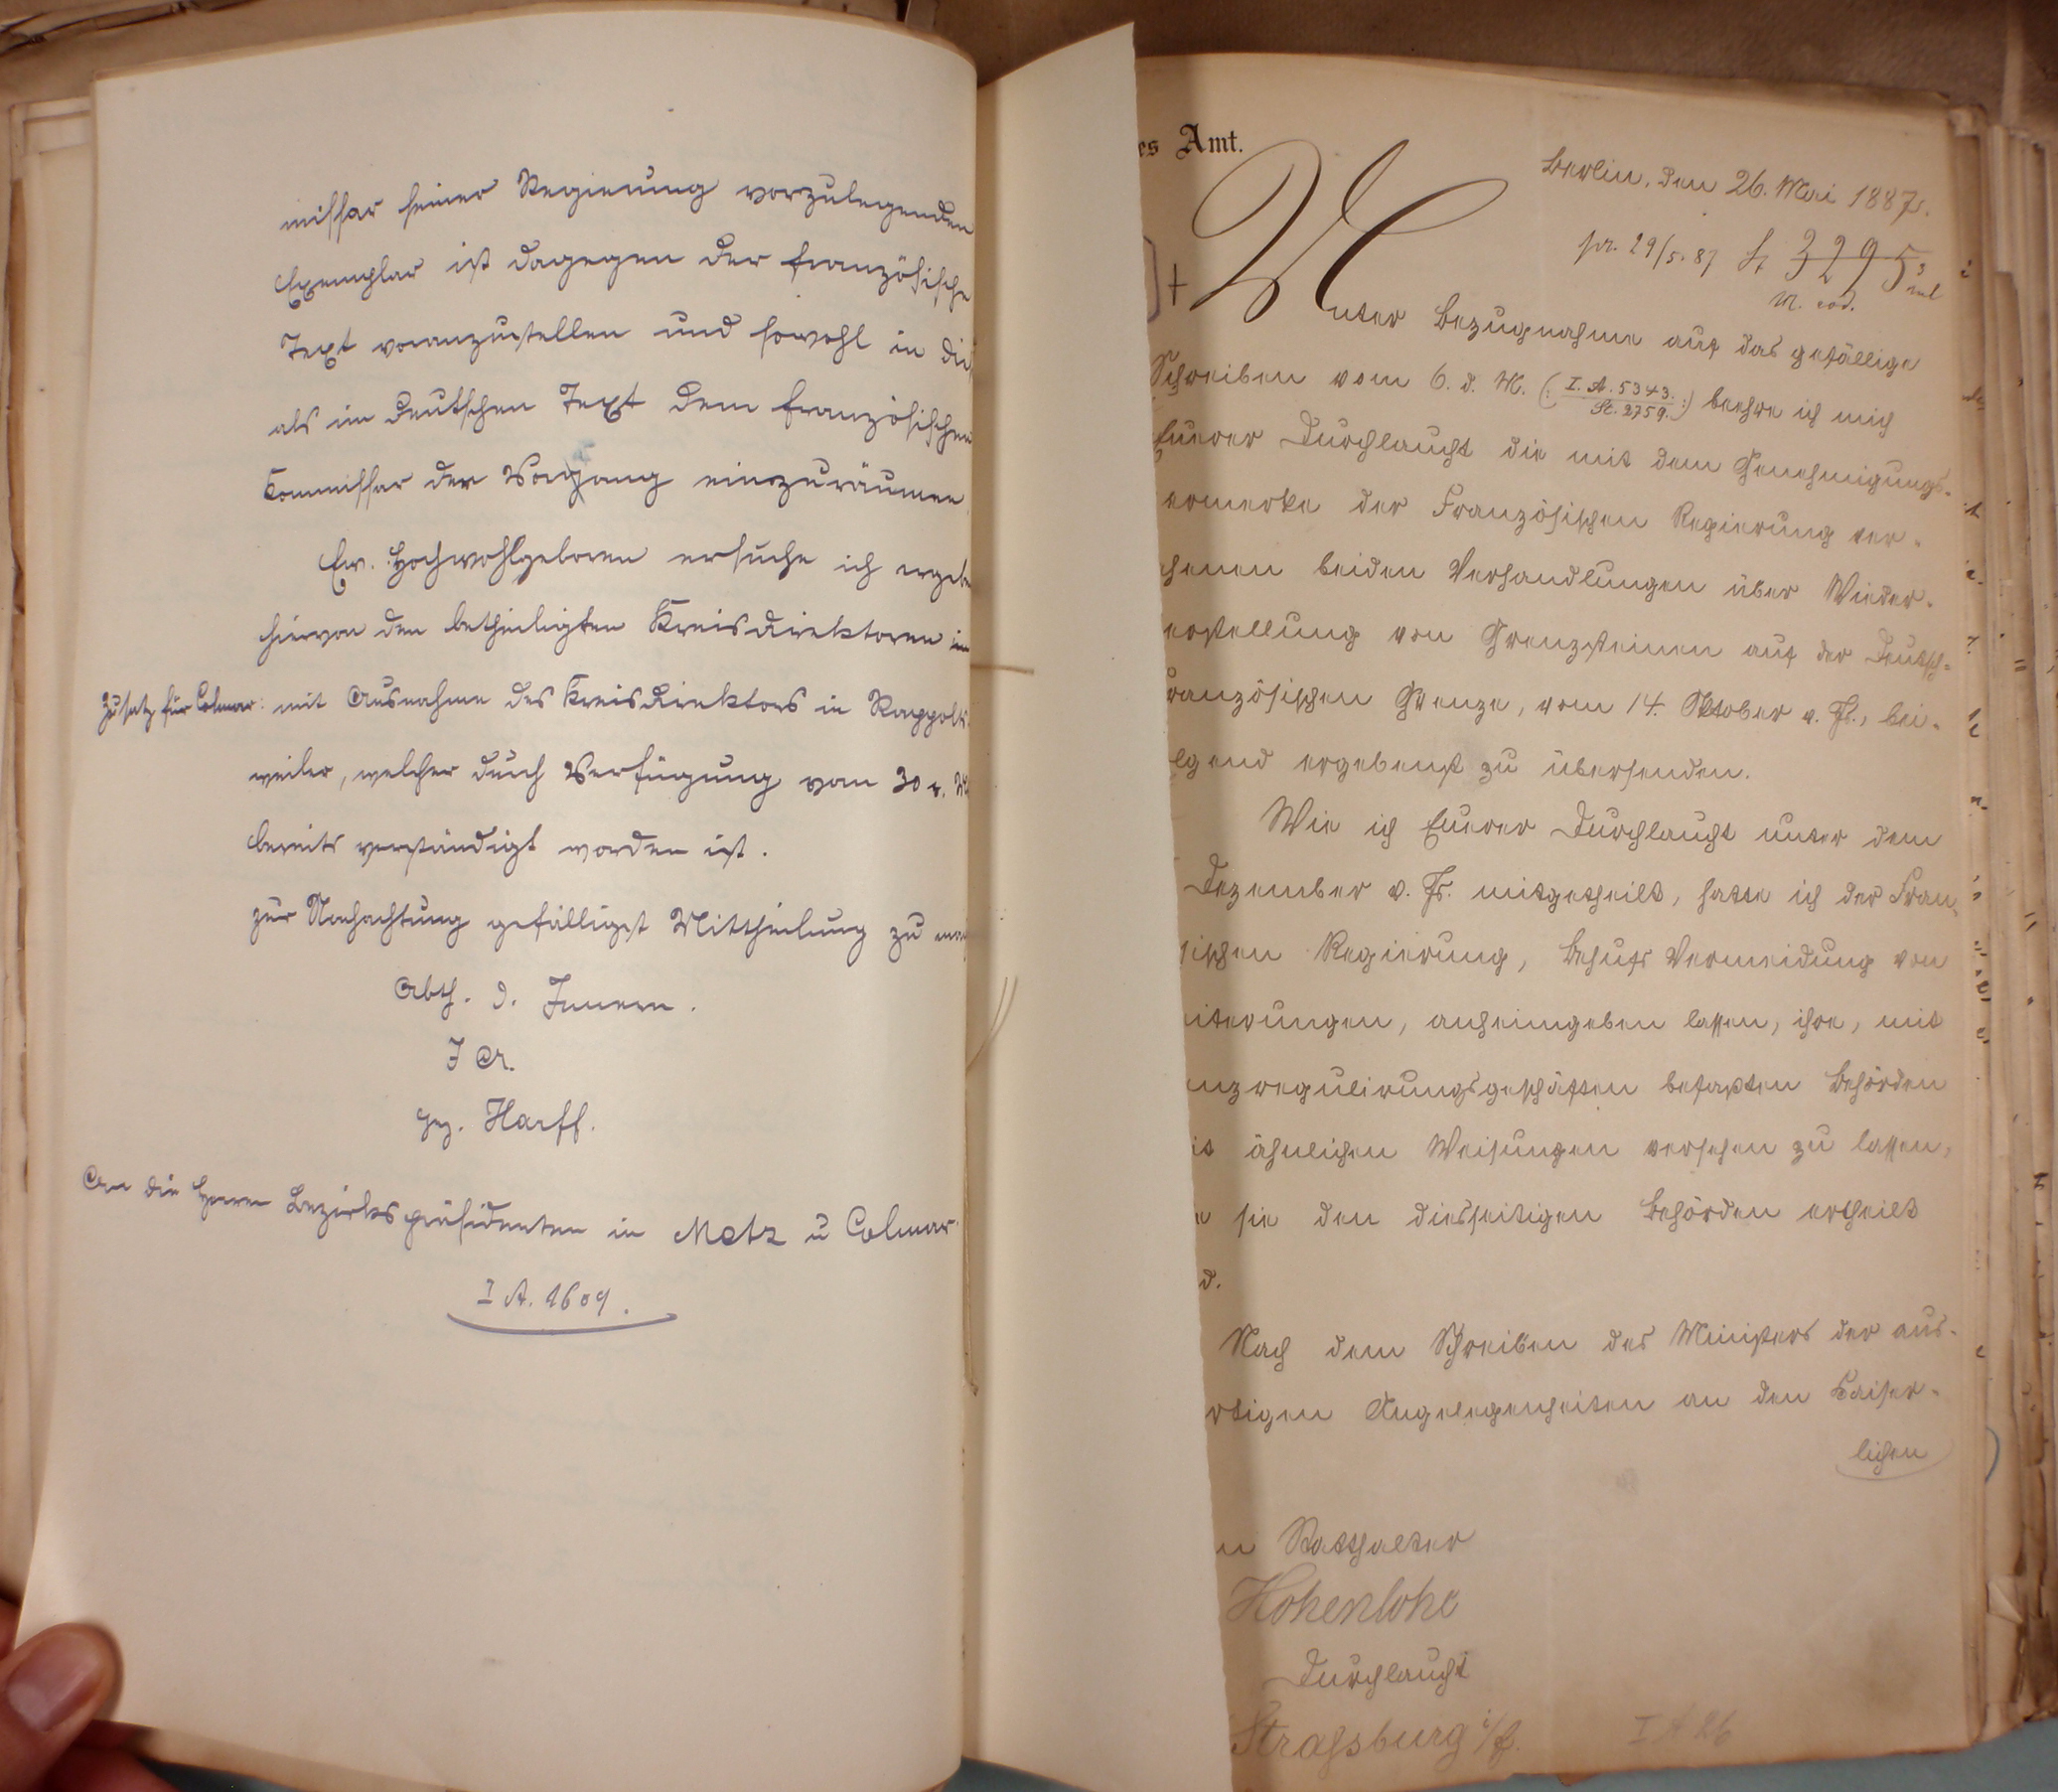 missar seiner Regierung vorzulegenden
Exemplar ist dagegen der französische
Text voranzustellen und sowohl in die
als im deutschen Text dem französischen
Commissar der Vorgang einzuräumen
Ew. Hochwohlgeboren ersuche ich ergebe
hiervon den betheiligten Kreisdirektoren im
Zusatz für Colmar: mit Ausnahme des Kreisdirektors in Rappolts
weiler, welcher durch Verfügung vom 30 v. M
bereits verständigt worden ist.
zur Nachachtung gefälligst Mittheilung zu mach
Abth. d. Innern.
I A.
gez. Harff.
An die Herren Bezirkspräsidenten in Metz u Colmar.
I A. 1609.
es Amt.
Berlin, den 26. Mai 1887.
pr. 29/5. 87 St 3295
M. eod.
Unter Bezugnahme auf das gefällige
Schreiben vom 6. d. M. (: I. A. 5343. / St. 2759. :) beehre ich mich
Euerer Durchlaucht die mit dem Genehmigungs-
ermerke der Französischen Regierung ver-
henen beiden Verhandlungen über Wieder-
erstellung von Grenzsteinen auf der Deutsch-
ranzösischen Grenze, vom 14. Oktober v. Js., bei-
egend ergebenst zu übersenden.
Wie ich Euerer Durchlaucht unter dem
Dezember v. Js. mitgetheilt, hatte ich der Fran-
sischen Regierung, behufs Vermeidung von
iterungen, anheimgeben lassen, ihre, mit
nzregulirungsgeschäften befaßten Behörden
it ähnlichen Weisungen versehen zu lassen,
e sie den diesseitigen Behörden ertheilt
d.
Nach dem Schreiben des Ministers der aus-
rtigen Angelegenheiten an den Kaiser-
lichen
n Statthalter
Hohenlohe
Durchlaucht
Strassburg i/E.
I A 26